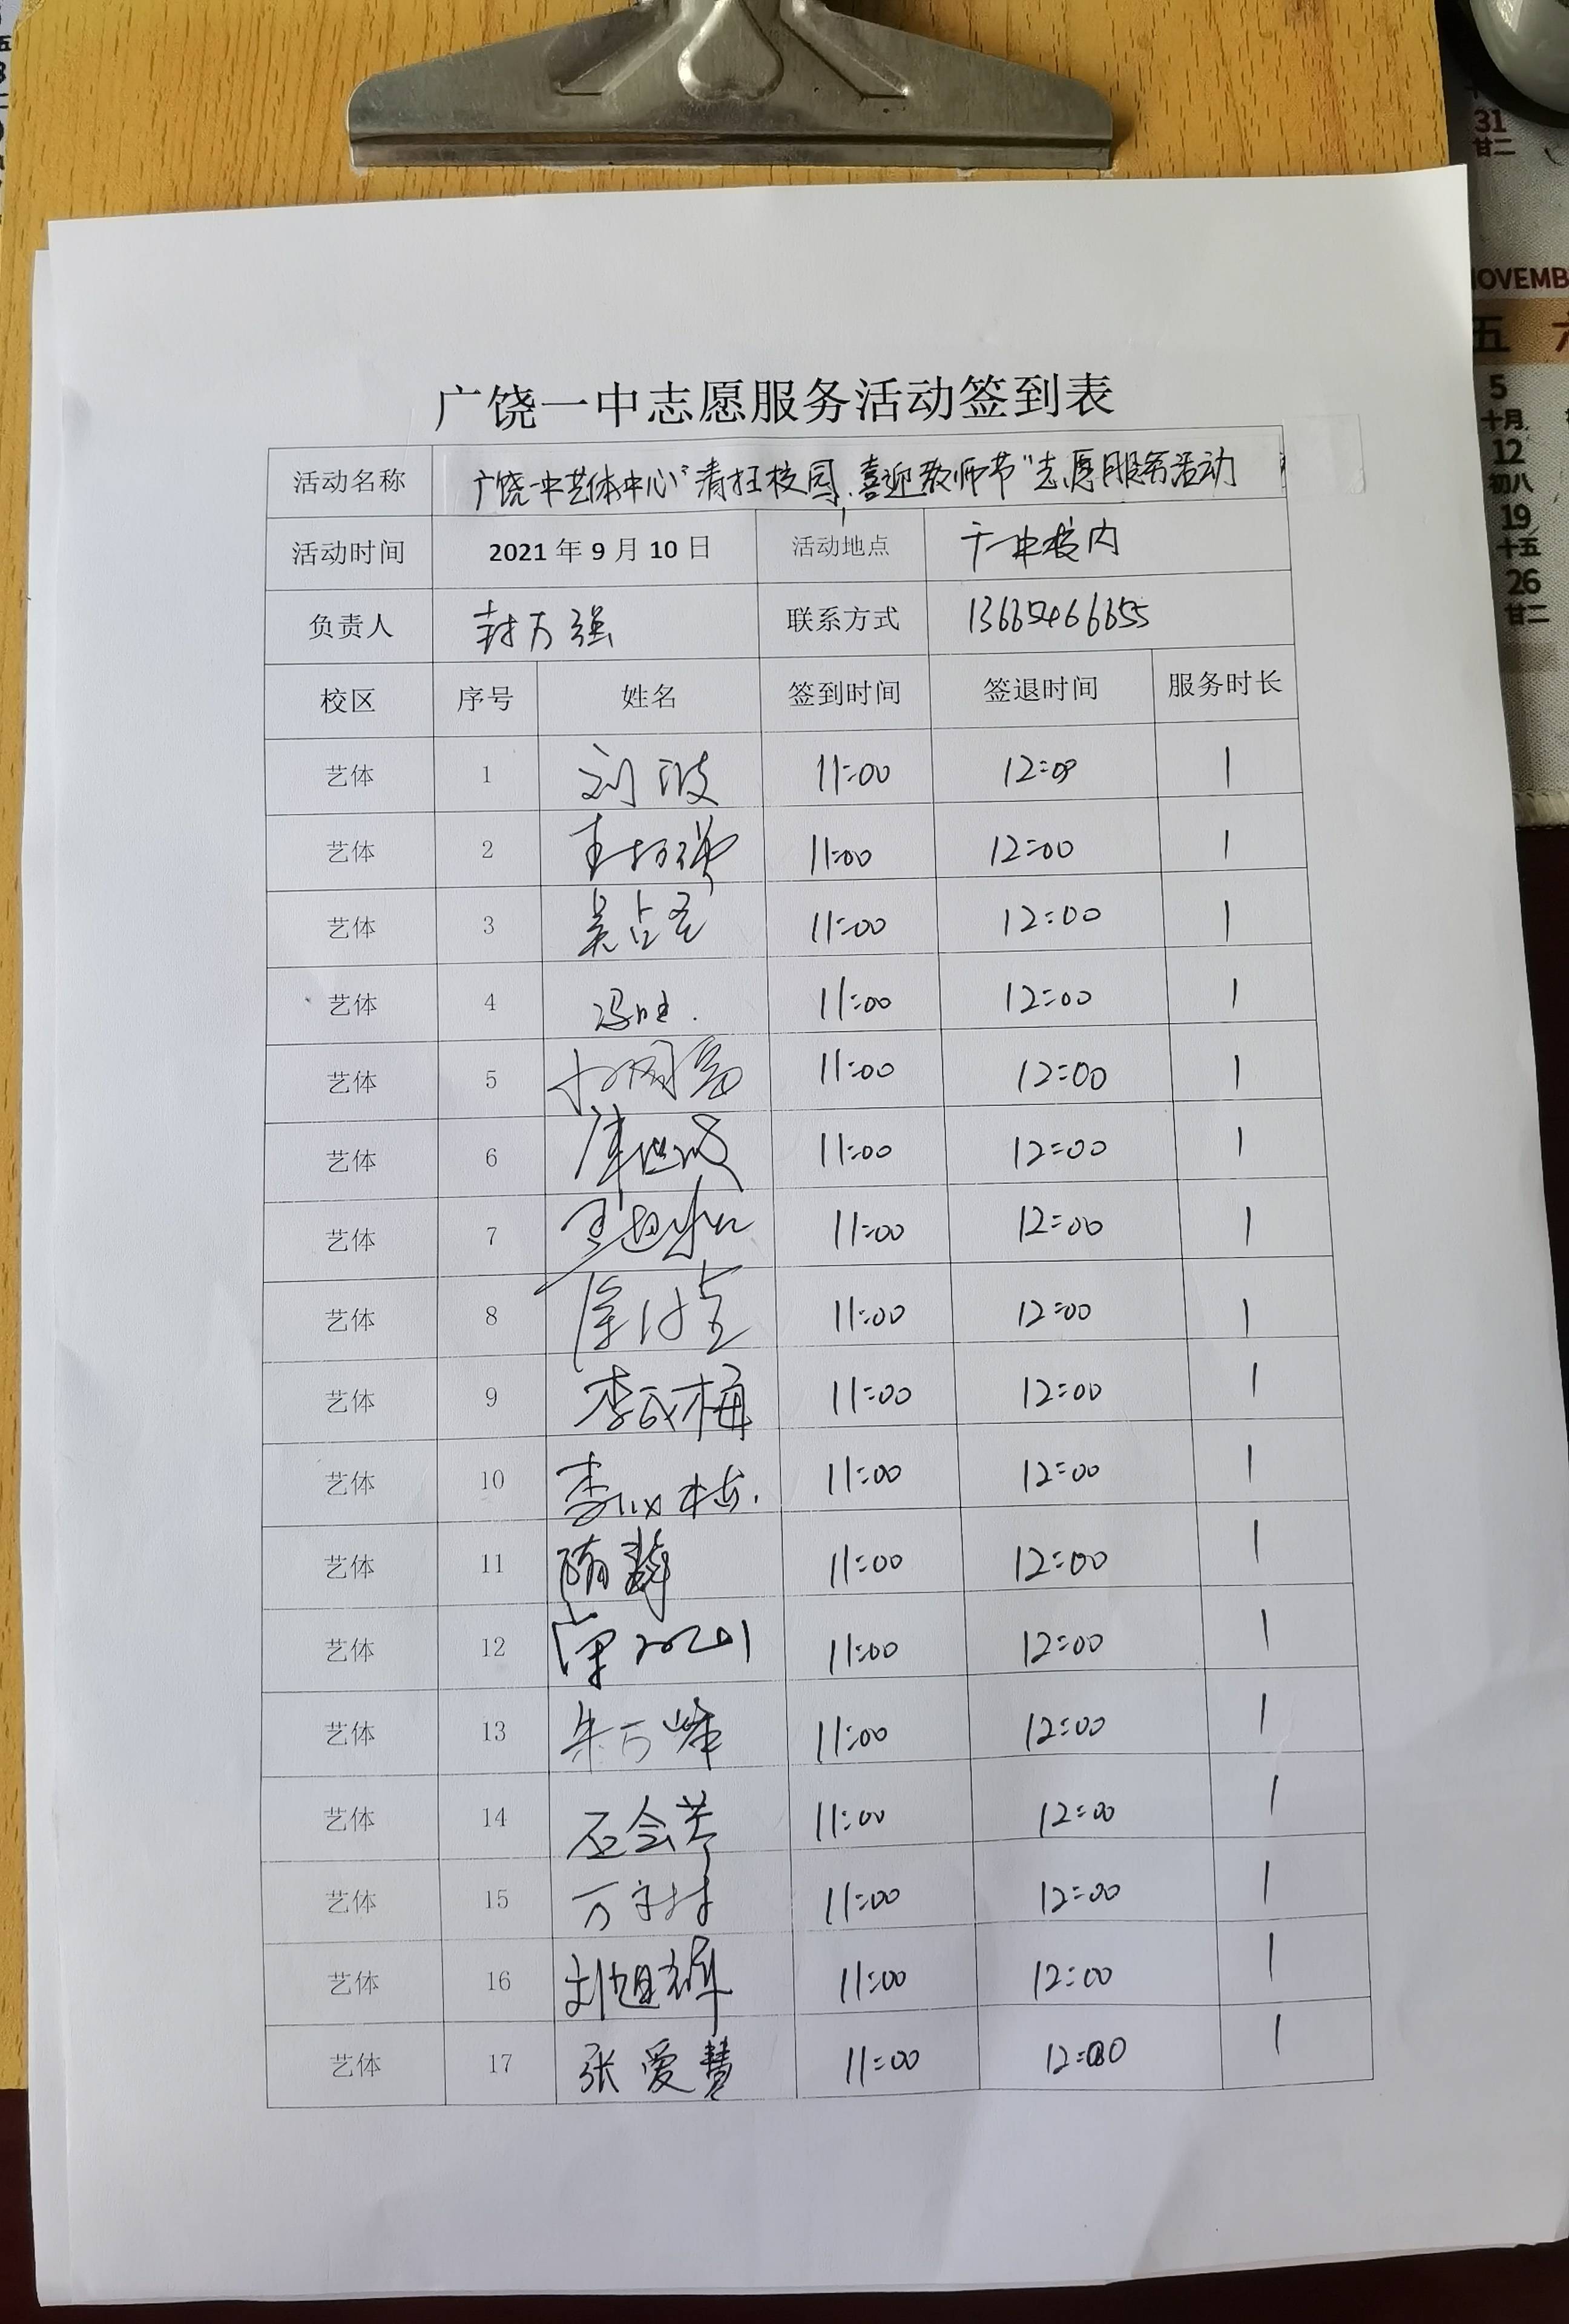 广饶一中志愿服务活动签到表
活动名称 广饶一中艺体中心“清扫校园,喜迎教师节”志愿服务活动
活动时间 2021年9月10日 活动地点 广一中校内
负责人 封万强 联系方式 13665466655
校区 序号 姓名 签到时间 签退时间 服务时长
艺体 1 刘波 11:00 12:00 1
艺体 2 11:00 12:00 1
艺体 3 吴占奎 11:00 12:00 1
艺体 4 11:00 12:00 1
艺体 5 11:00 12:00 1
艺体 6 11:00 12:00 1
艺体 7 11:00 12:00 1
艺体 8 11:00 12:00 1
艺体 9 李成梅 11:00 12:00 1
艺体 10 11:00 12:00 1
艺体 11 11:00 12:00 1
艺体 12 11:00 12:00 1
艺体 13 朱万峰 11:00 12:00 1
艺体 14 石会芳 11:00 12:00 1
艺体 15 11:00 12:00 1
艺体 16 刘旭辉 11:00 12:00 1
艺体 17 张爱慧 11:00 12:00 1
31
廿二
五
5
十月
12
初八
19
十五
26
廿二